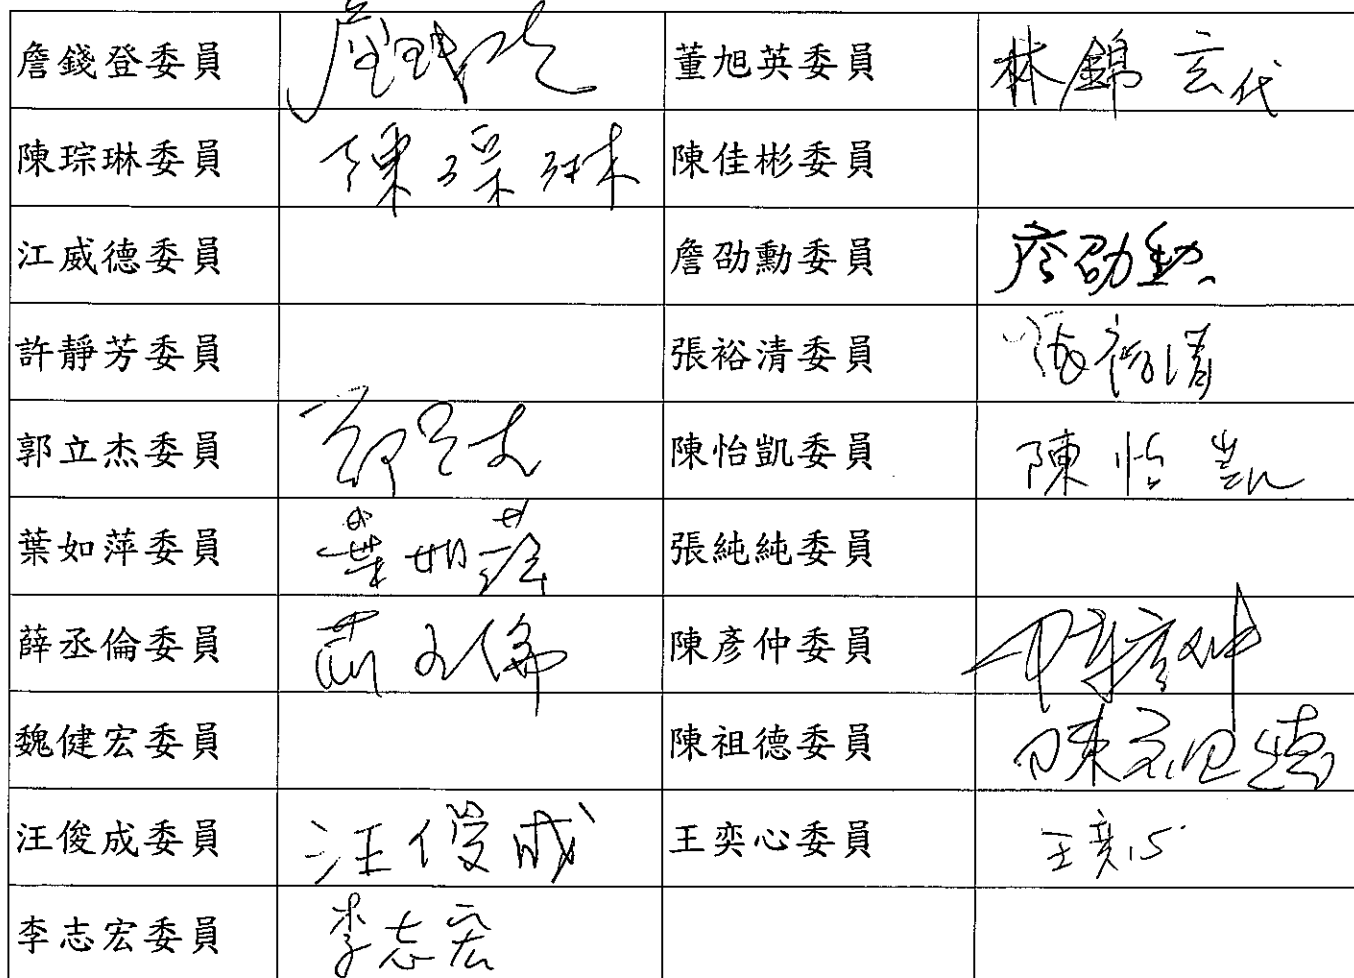 詹錢登委員 詹錢登 董旭英委員 林錦玄代
陳琮琳委員 陳琮琳 陳佳彬委員
江威德委員 詹劭勳委員 詹劭勳
許靜芳委員 張裕清委員 張裕清
郭立杰委員 郭立杰 陳怡凱委員 陳怡凱
葉如萍委員 葉如萍 張純純委員
薛丞倫委員 薛丞倫 陳彥仲委員 陳彥仲
魏健宏委員 陳祖德委員 陳祖德
汪俊成委員 汪俊成 王奕心委員 王奕心
李志宏委員 李志宏